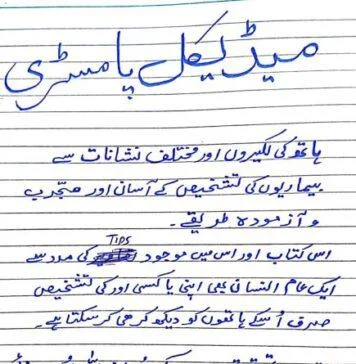 میڈیکل پامسٹری
ہاتھ کی لکیروں اور مختلف نشانات سے
بیماریوں کی تشخیص کے آسان اور مجرب
و آزمودہ طریقے۔
TIPS
اس کتاب اور اس میں موجود کی مدد سے
ایک عام انسان بھی اپنی یا کسی اور کی تشخیص
صرف اُسکے ہاتھوں کو دیکھ کر ہی کر سکتا ہے۔